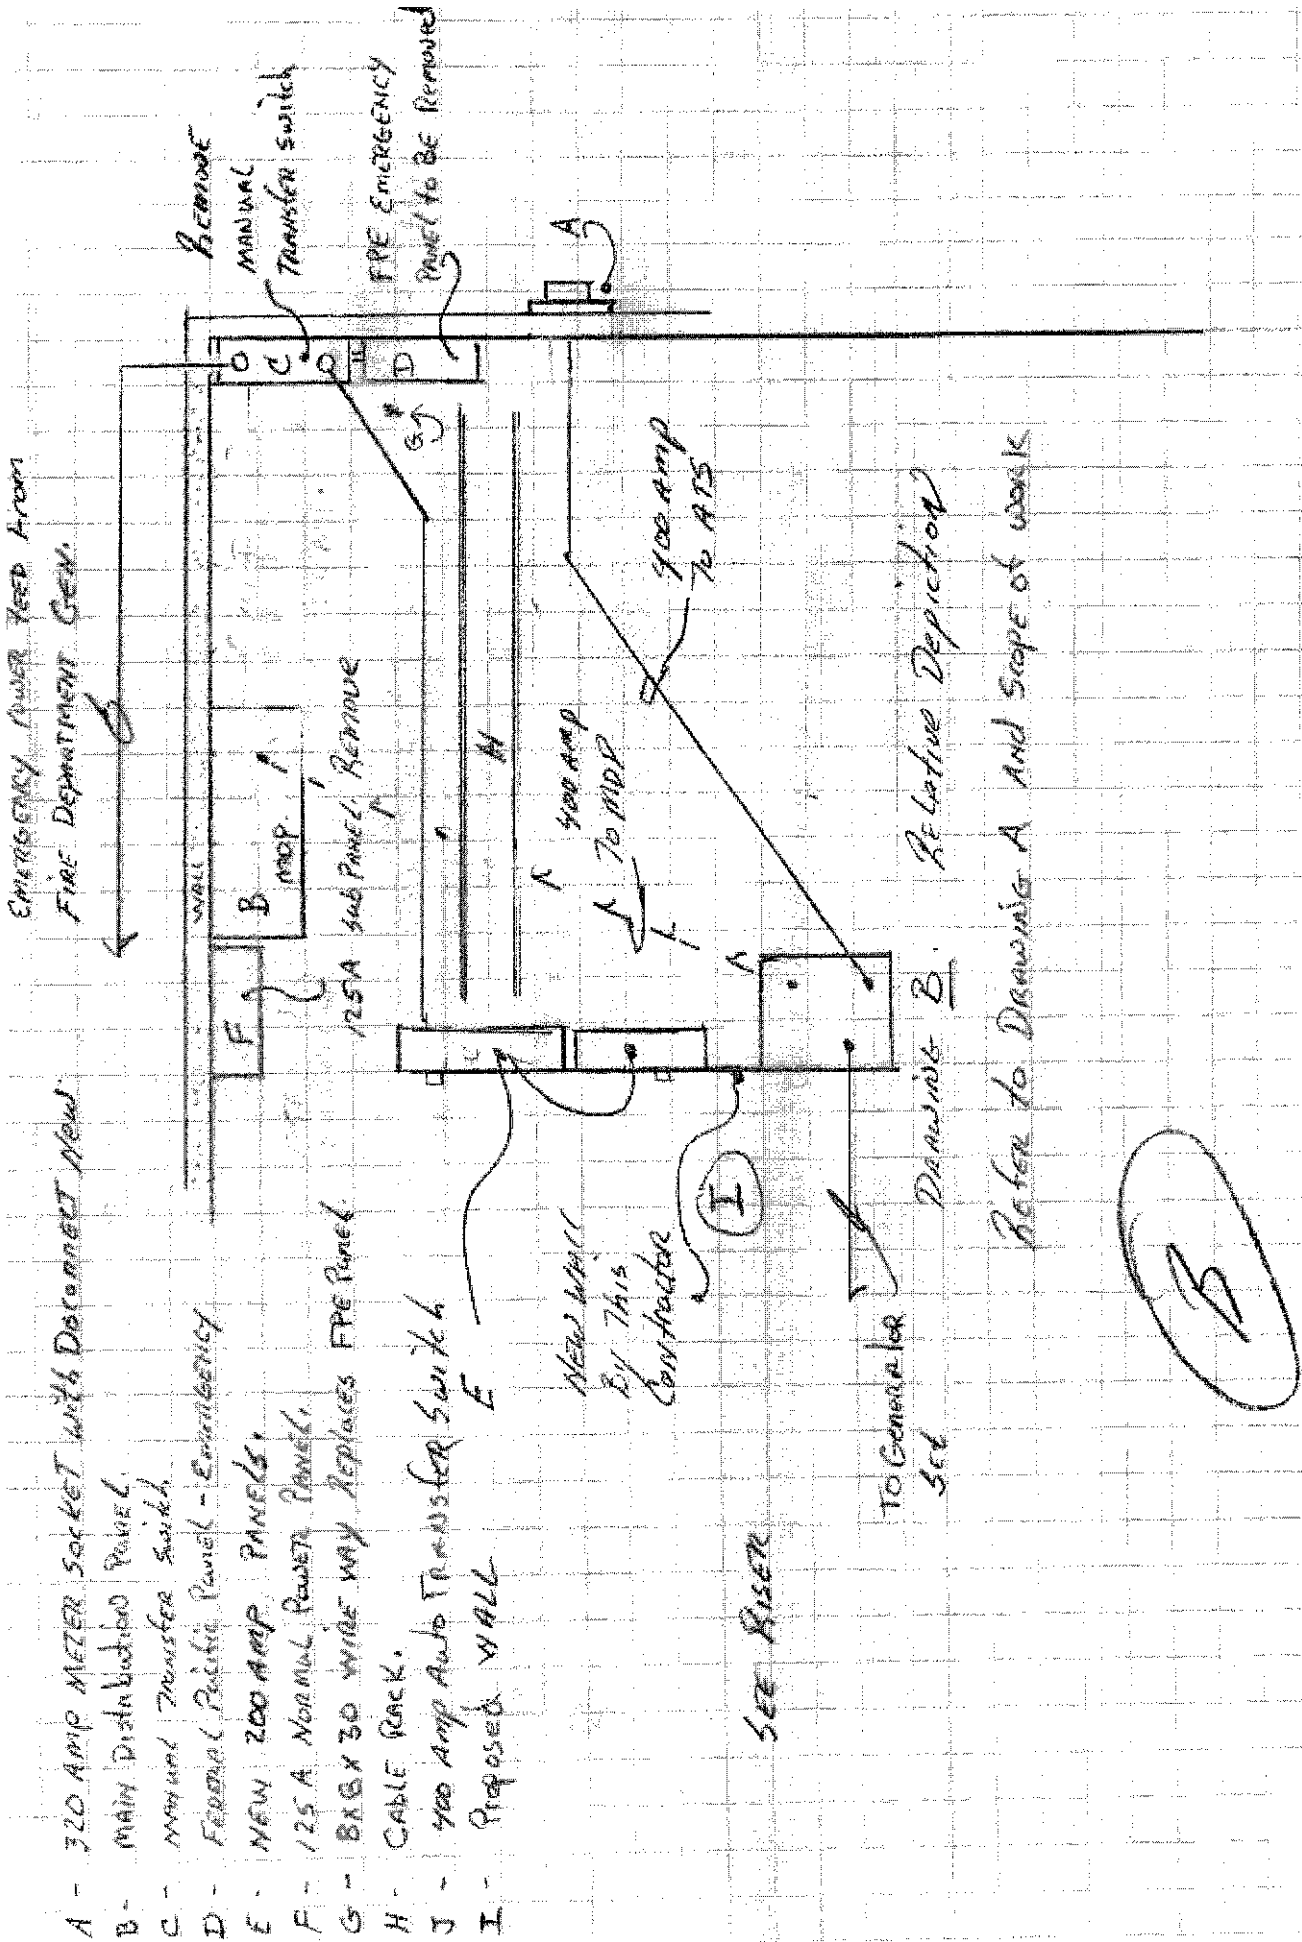 A - 320 AMP METER SOCKET with Disconnect New.
B - MAIN Distribution Panel.
C - MANUAL Transfer Switch
D - FEDERAL Pacific Panel - EMERGENCY
E - NEW 200 AMP PANELS.
F - 125 A NORMAL POWER PANEL.
G - 8X8X30 WIRE WAY Replaces FPE Panel
H - CABLE RACK.
J - 400 Amp Auto TRANSFER Switch
I - Proposed WALL
EMERGENCY POWER FEED from
FIRE DEPARTMENT GEN.
WALL
F
B
MDP
125A Sub PANEL. REMOVE
REMOVE
MANUAL
TRANSFER Switch
C
D
FPE EMERGENCY
PANEL to BE Removed
A
G
H
400 AMP
TO MDP
400 AMP
TO ATS
E
NEW WALL
By This
Contractor
I
TO Generator
Set
SEE RISER
DRAWING B.
Relative Depiction
Refer to DRAWING A AND Scope of WORK
B